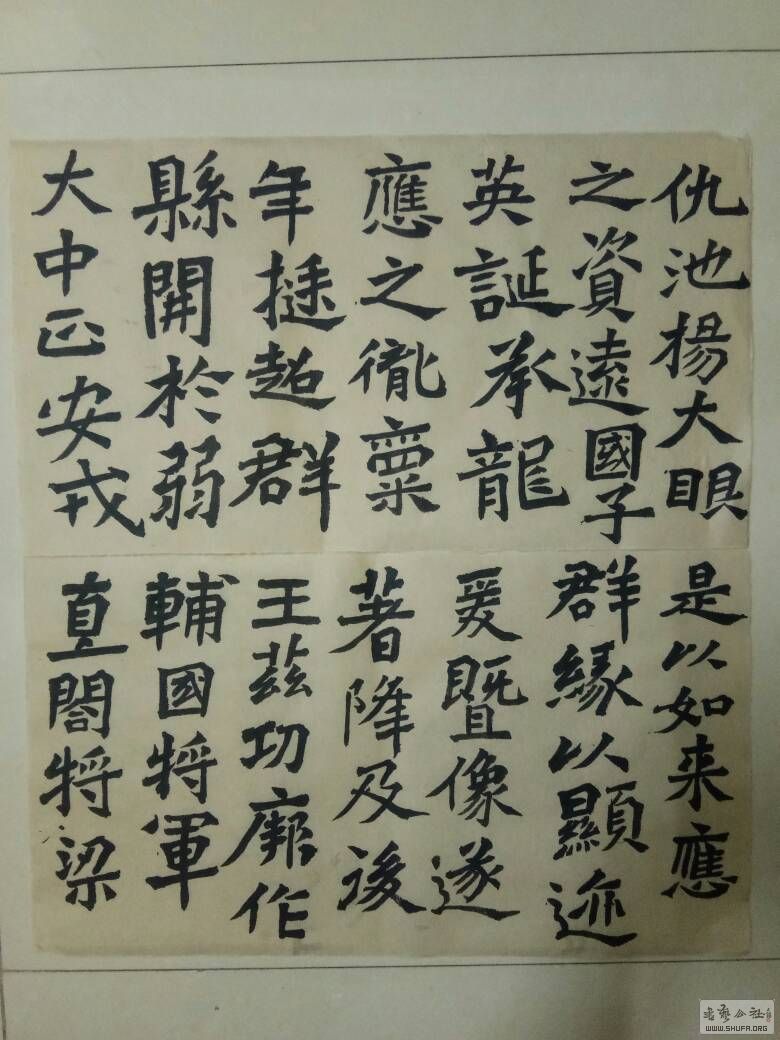 仇池揚大眼
之資遠國子
英誕承龍
應之胤稟
年挺超群
縣開於弱
大中正安戎
是以如来應
群緣以顯迹
爰暨像遂
著降及後
王茲功作
輔國將軍
直閤將梁
書藝公社
WWW.SHUFA.ORG